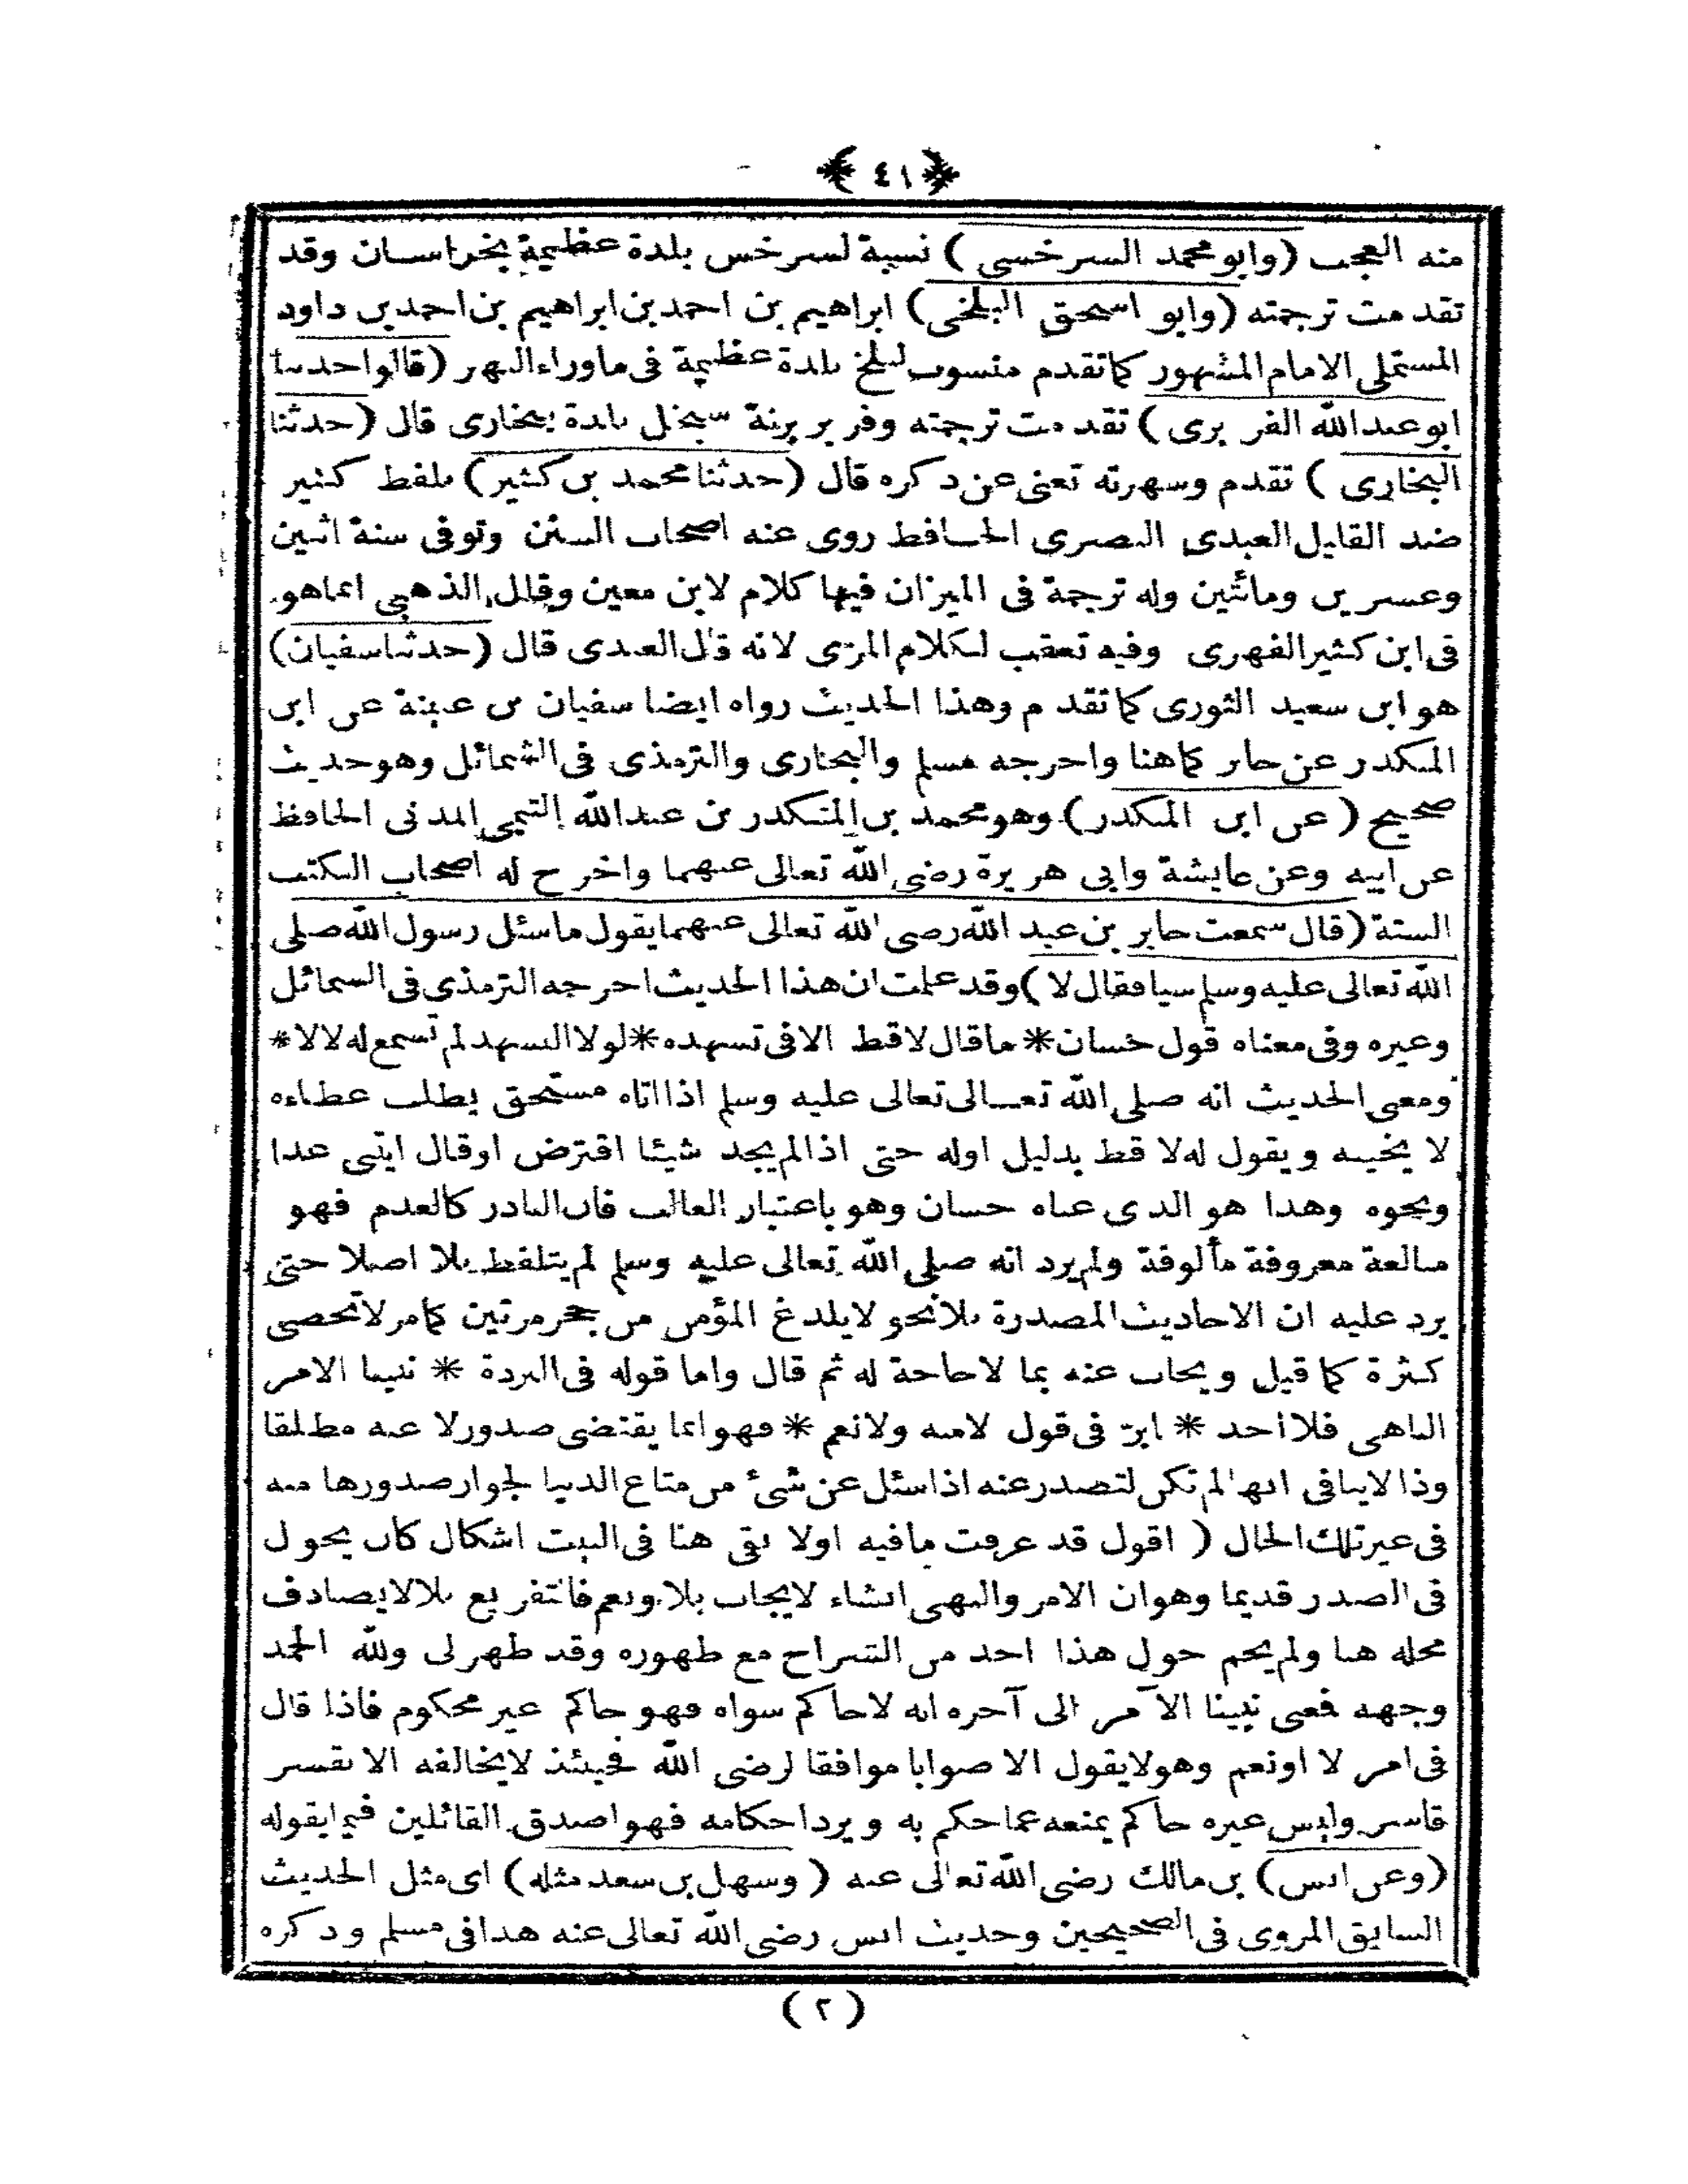 ﴿ ٤١ ﴾
منه العجب (وابو محمد السرخسى) نسبة لسرخس بلدة عظيمة بخراسان وقد
تقدمت ترجمته (وابو اسحق البلخى) ابراهيم بن احمد بن ابراهيم بن احمد بن داود
المستملى الامام المشهور كما تقدم منسوب لبلخ بلدة عظيمة فى ماوراء النهر (قالوا حدثنا
ابو عبدالله الفربرى) تقدمت ترجمته وفربر بزنة سبحل بلدة ببخارى قال (حدثنا
البخارى) تقدم وشهرته تغنى عن ذكره قال (حدثنا محمد بن كثير) بلفظ كثير
ضد القليل العبدى البصرى الحافظ روى عنه اصحاب السنن وتوفى سنة اثنين
وعشرين ومائتين وله ترجمة فى الميزان فيها كلام لابن معين وقال الذهبى انما هو
فى ابن كثير الفهرى وفيه تعقب لكلام المزى لانه قال العبدى قال (حدثنا سفيان)
هو ابن سعيد الثورى كما تقدم وهذا الحديث رواه ايضا سفيان بن عيينة عن ابن
المنكدر عن جابر كما هنا واخرجه مسلم والبخارى والترمذى فى الشمائل وهو حديث
صحيح (عن ابن المنكدر) وهو محمد بن المنكدر بن عبدالله التيمى المدنى الحافظ
عن ابيه وعن عايشة وابى هريرة رضى الله تعالى عنهما واخرج له اصحاب الكتب
الستة (قال سمعت جابر بن عبد الله رضى الله تعالى عنهما يقول ماسئل رسول الله صلى
الله تعالى عليه وسلم شيا فقال لا) وقد علمت ان هذا الحديث اخرجه الترمذى فى الشمائل
وغيره وفى معناه قول حسان * ماقال لا قط الا فى تشهده * لولا التشهد لم تسمع له لا لا *
ومعنى الحديث انه صلى الله تعالى تعالى عليه وسلم اذا اتاه مستحق يطلب عطاءه
لا يخيبه ويقول له لا قط بدليل اوله حتى اذا لم يجد شيئا اقترض او قال ايتنى غدا
ونحوه وهذا هو الذى عناه حسان وهو باعتبار الغالب فان النادر كالعدم فهو
مبالغة معروفة مألوفة ولم يرد انه صلى الله تعالى عليه وسلم لم يتلفظ بلا اصلا حتى
يرد عليه ان الاحاديث المصدرة بلا نحو لا يلدغ المؤمن من جحر مرتين كما مر لا تحصى
كثرة كما قيل ويجاب عنه بما لا حاجة له ثم قال واما قوله فى البردة * نبينا الامر
الناهى فلا احد * ابر فى قول لا منه ولا نعم * فهو انما يقتضى صدور لا عنه مطلقا
وذا لا ينافى انها لم تكن لتصدر عنه اذا سئل عن شئ من متاع الدنيا لجواز صدورها منه
فى غير تلك الحال (اقول قد عرفت مافيه اولا بقى هنا فى البيت اشكال كان يجول
فى الصدر قديما وهو ان الامر والنهى انشاء لا يجاب بلا ونعم فالتفريع بلا لا يصادف
محله هنا ولم يحم حول هذا احد من الشراح مع ظهوره وقد ظهر لى ولله الحمد
وجهه فمعنى نبينا الآمر الى آخره انه لا حاكم سواه فهو حاكم غير محكوم فاذا قال
فى امر لا او نعم وهو لا يقول الا صوابا موافقا لرضى الله فحينئذ لا يخالفه الا بقسر
قاسر وليس غيره حاكم يمنعه عما حكم به ويرد احكامه فهو اصدق القائلين فيما يقوله
(وعن انس) بن مالك رضى الله تعالى عنه (وسهل بن سعد مثله) اى مثل الحديث
السابق المروى فى الصحيحين وحديث انس رضى الله تعالى عنه هذا فى مسلم وذكره
(٢)